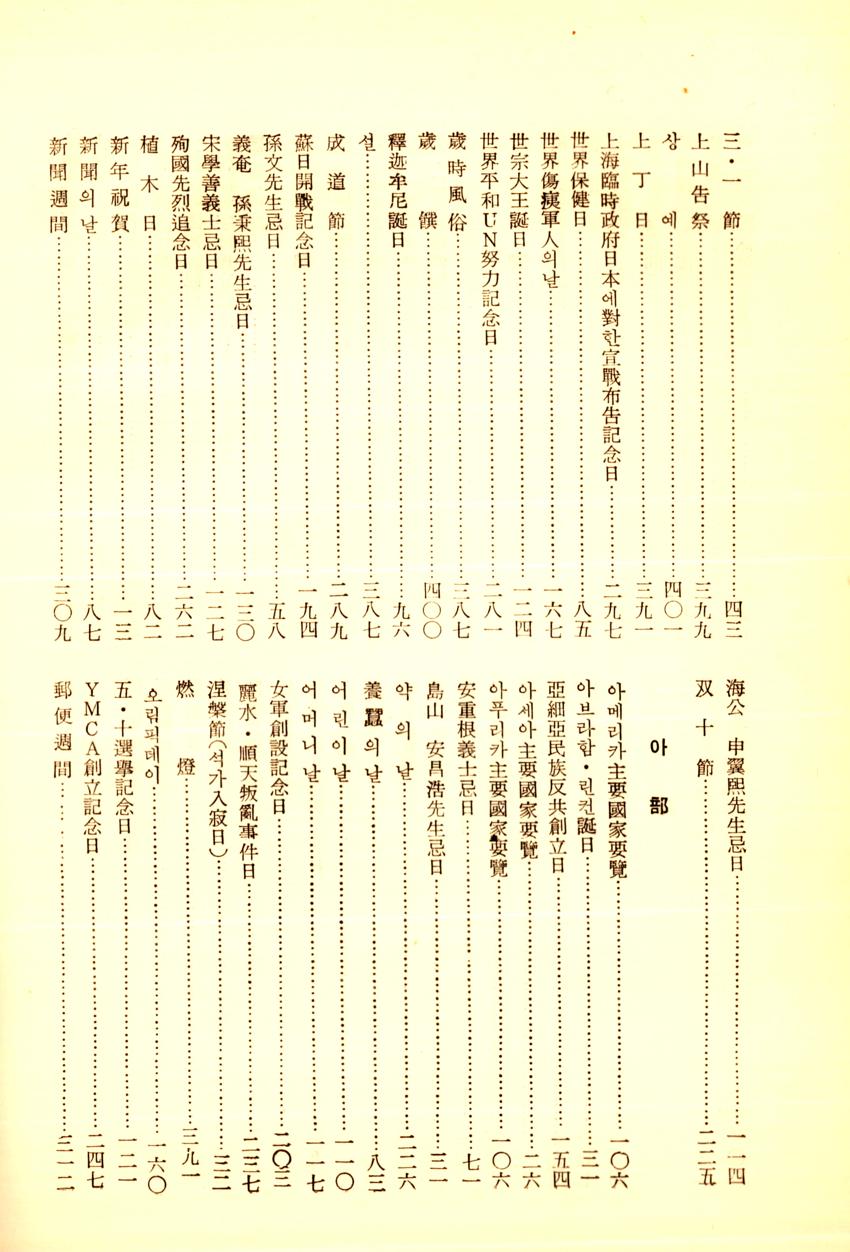 三・一節……四三
上山告祭……三九九
상예……四〇一
上丁日……三九一
上海臨時政府日本에對한宣戰布告記念日……二九七
世界保健日……八五
世界傷痍軍人의날……一六七
世宗大王誕日……一二四
世界平和UN努力記念日……二八一
歲時風俗……三八七
歲饌……四〇〇
釋迦牟尼誕日……九六
설……三八七
成道節……二八九
蘇日開戰記念日……一九四
孫文先生忌日……五八
義奄 孫秉熙先生忌日……一三〇
宋學善義士忌日……一二七
殉國先烈追念日……二六二
植木日……八二
新年祝賀……一三
新聞의날……八七
新聞週間……三〇九
海公 申翼熙先生忌日……一一四
双十節……二二五
아部
아메리카主要國家要覽……一〇六
아브라함・린컨誕日……三一
亞細亞民族反共創立日……一五四
아세아主要國家要覽……二六
아푸리카主要國家要覽……一〇六
安重根義士忌日……七一
島山 安昌浩先生忌日……三一
약의날……二二六
養蠶의날……八三
어린이날……一一〇
어머니날……一一七
女軍創設記念日……二〇三
麗水・順天叛亂事件日……二三七
涅槃節(석가入寂日)……三二
燃燈……三九一
오림픽데이……一六〇
五・十選擧記念日……一二一
YMCA創立記念日……二四七
郵便週間……三一二